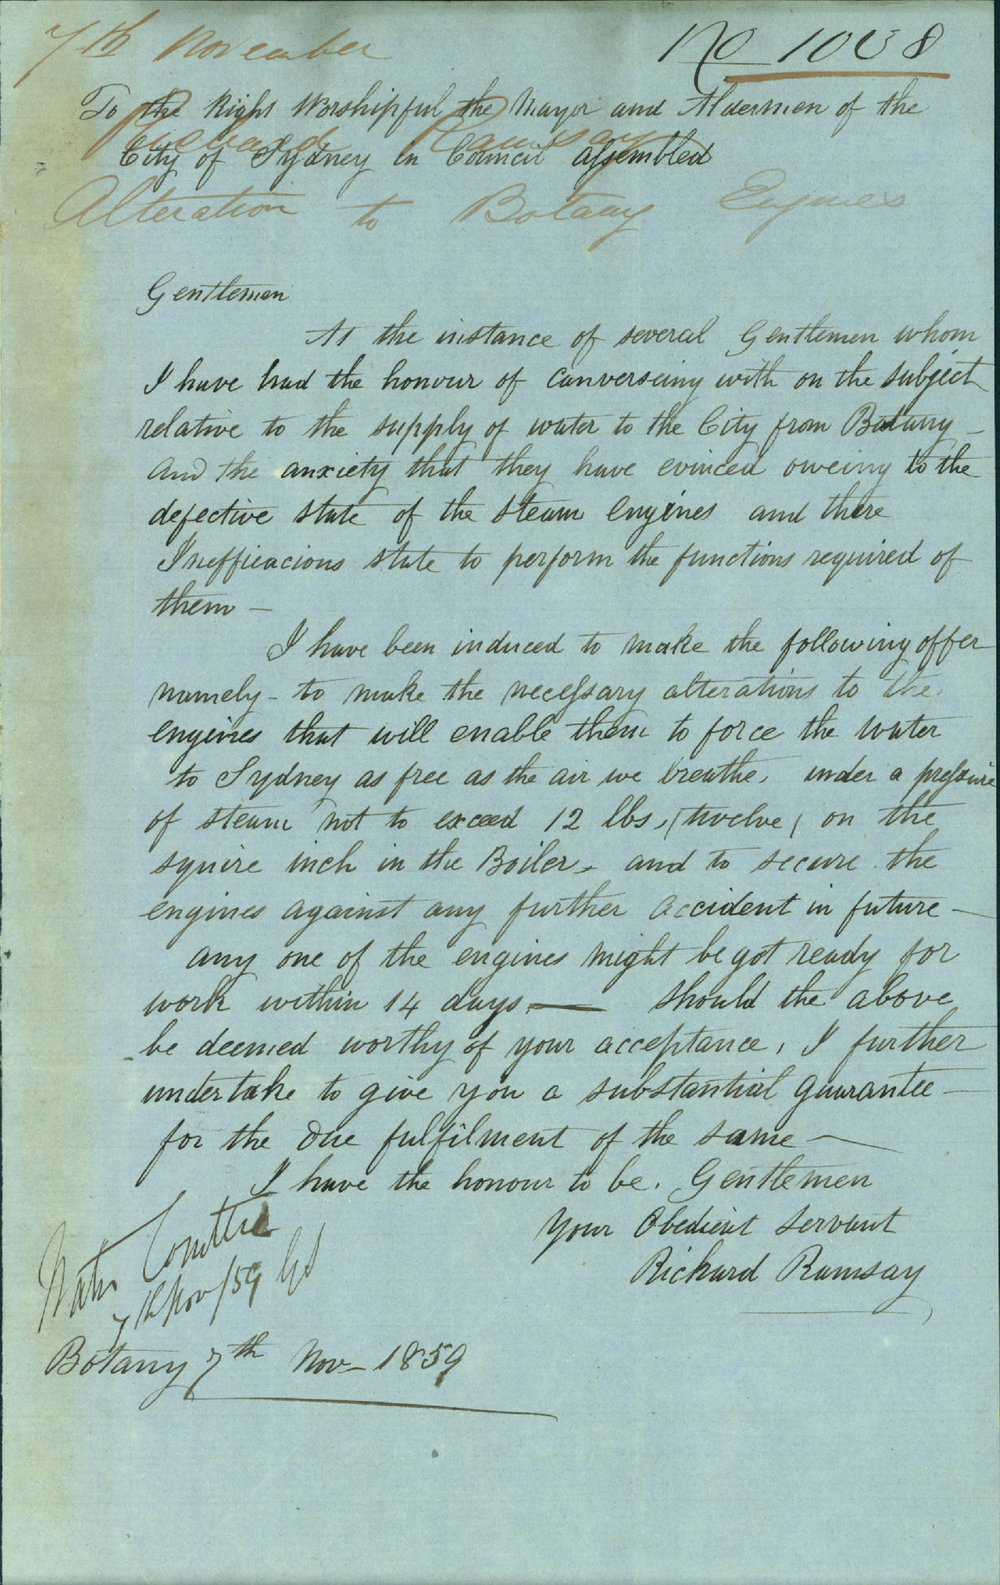 7th November
No 1008
To the Right Worshipful the Mayor and Aldermen of the
Richard Ramsay
City of Sydney in Council assembled
Alteration to Botany Engines
Gentlemen
At the instance of several Gentlemen whom
I have had the honour of converseing with on the subject
relative to the supply of water to the City from Botany –
and the anxiety that they have evinced oweing to the
defective state of the steam engines and there
Inefficacious state to perform the functions required of
them –
I have been induced to make the following offer
namely – to make the necessary alterations to the
engines that will enable them to force the water
to Sydney as free as the air we breathe, under a pressure
of steam not to exceed 12 lbs, (twelve) on the
squire inch in the Boiler, and to secure the
engines against any further accident in future –
any one of the engines might be got ready for
work within 14 days, — should the above
be deemed worthy of your acceptance, I further
undertake to give you a substantial guarantee –
for the due fulfilment of the same –
I have the honour to be. Gentlemen
Your Obedient servant
Richard Ramsay
Water Comttee
7th Nov/59
Botany 7th Nov – 1859